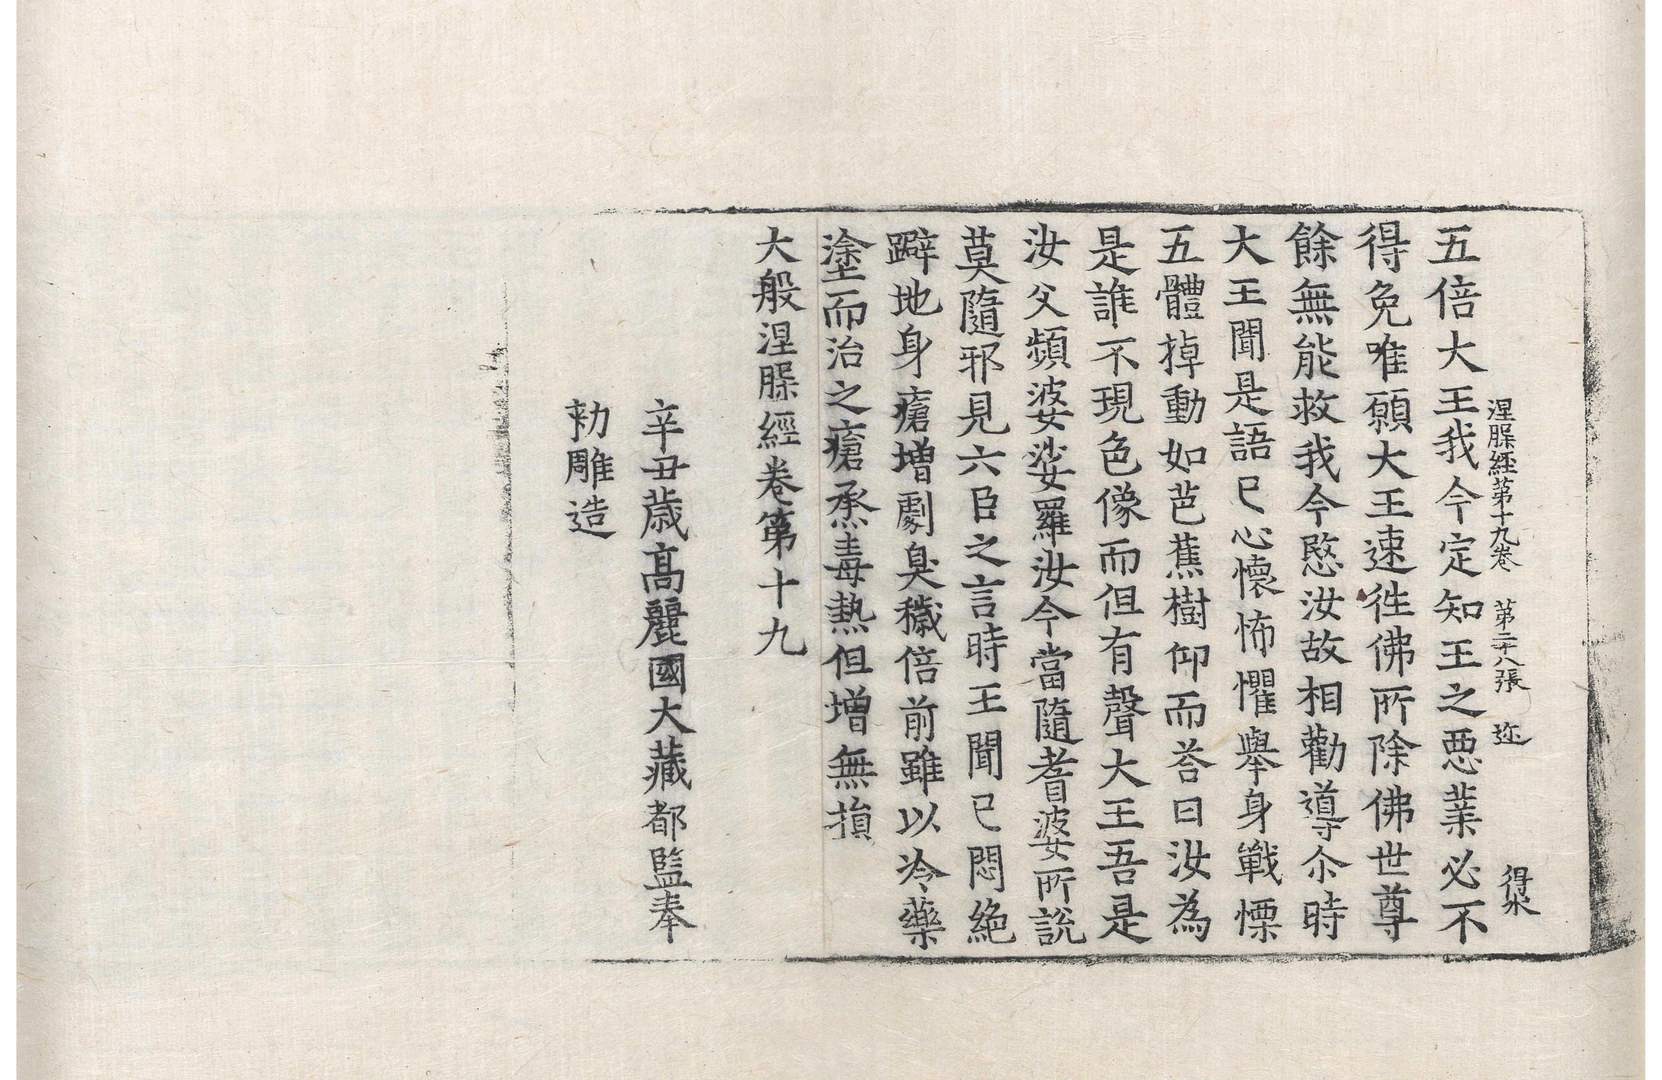 涅槃経第十九卷 第二十八張 迩 得水
五倍大王我今定知王之惡業必不
得免唯願大王速徃佛所除佛世尊
餘無能救我今愍汝故相勸導尒時
大王聞是語已心懷怖懼舉身戰慄
五體掉動如芭蕉樹仰而荅曰汝為
是誰不現色像而但有聲大王吾是
汝父頻婆娑羅汝今當隨耆婆所說
莫隨邪見六臣之言時王聞已悶絕
躃地身瘡增劇臭穢倍前雖以冷藥
塗而治之瘡烝毒熱但增無損
大般涅槃經卷第十九
辛丑歲高麗國大藏都監奉
勅雕造